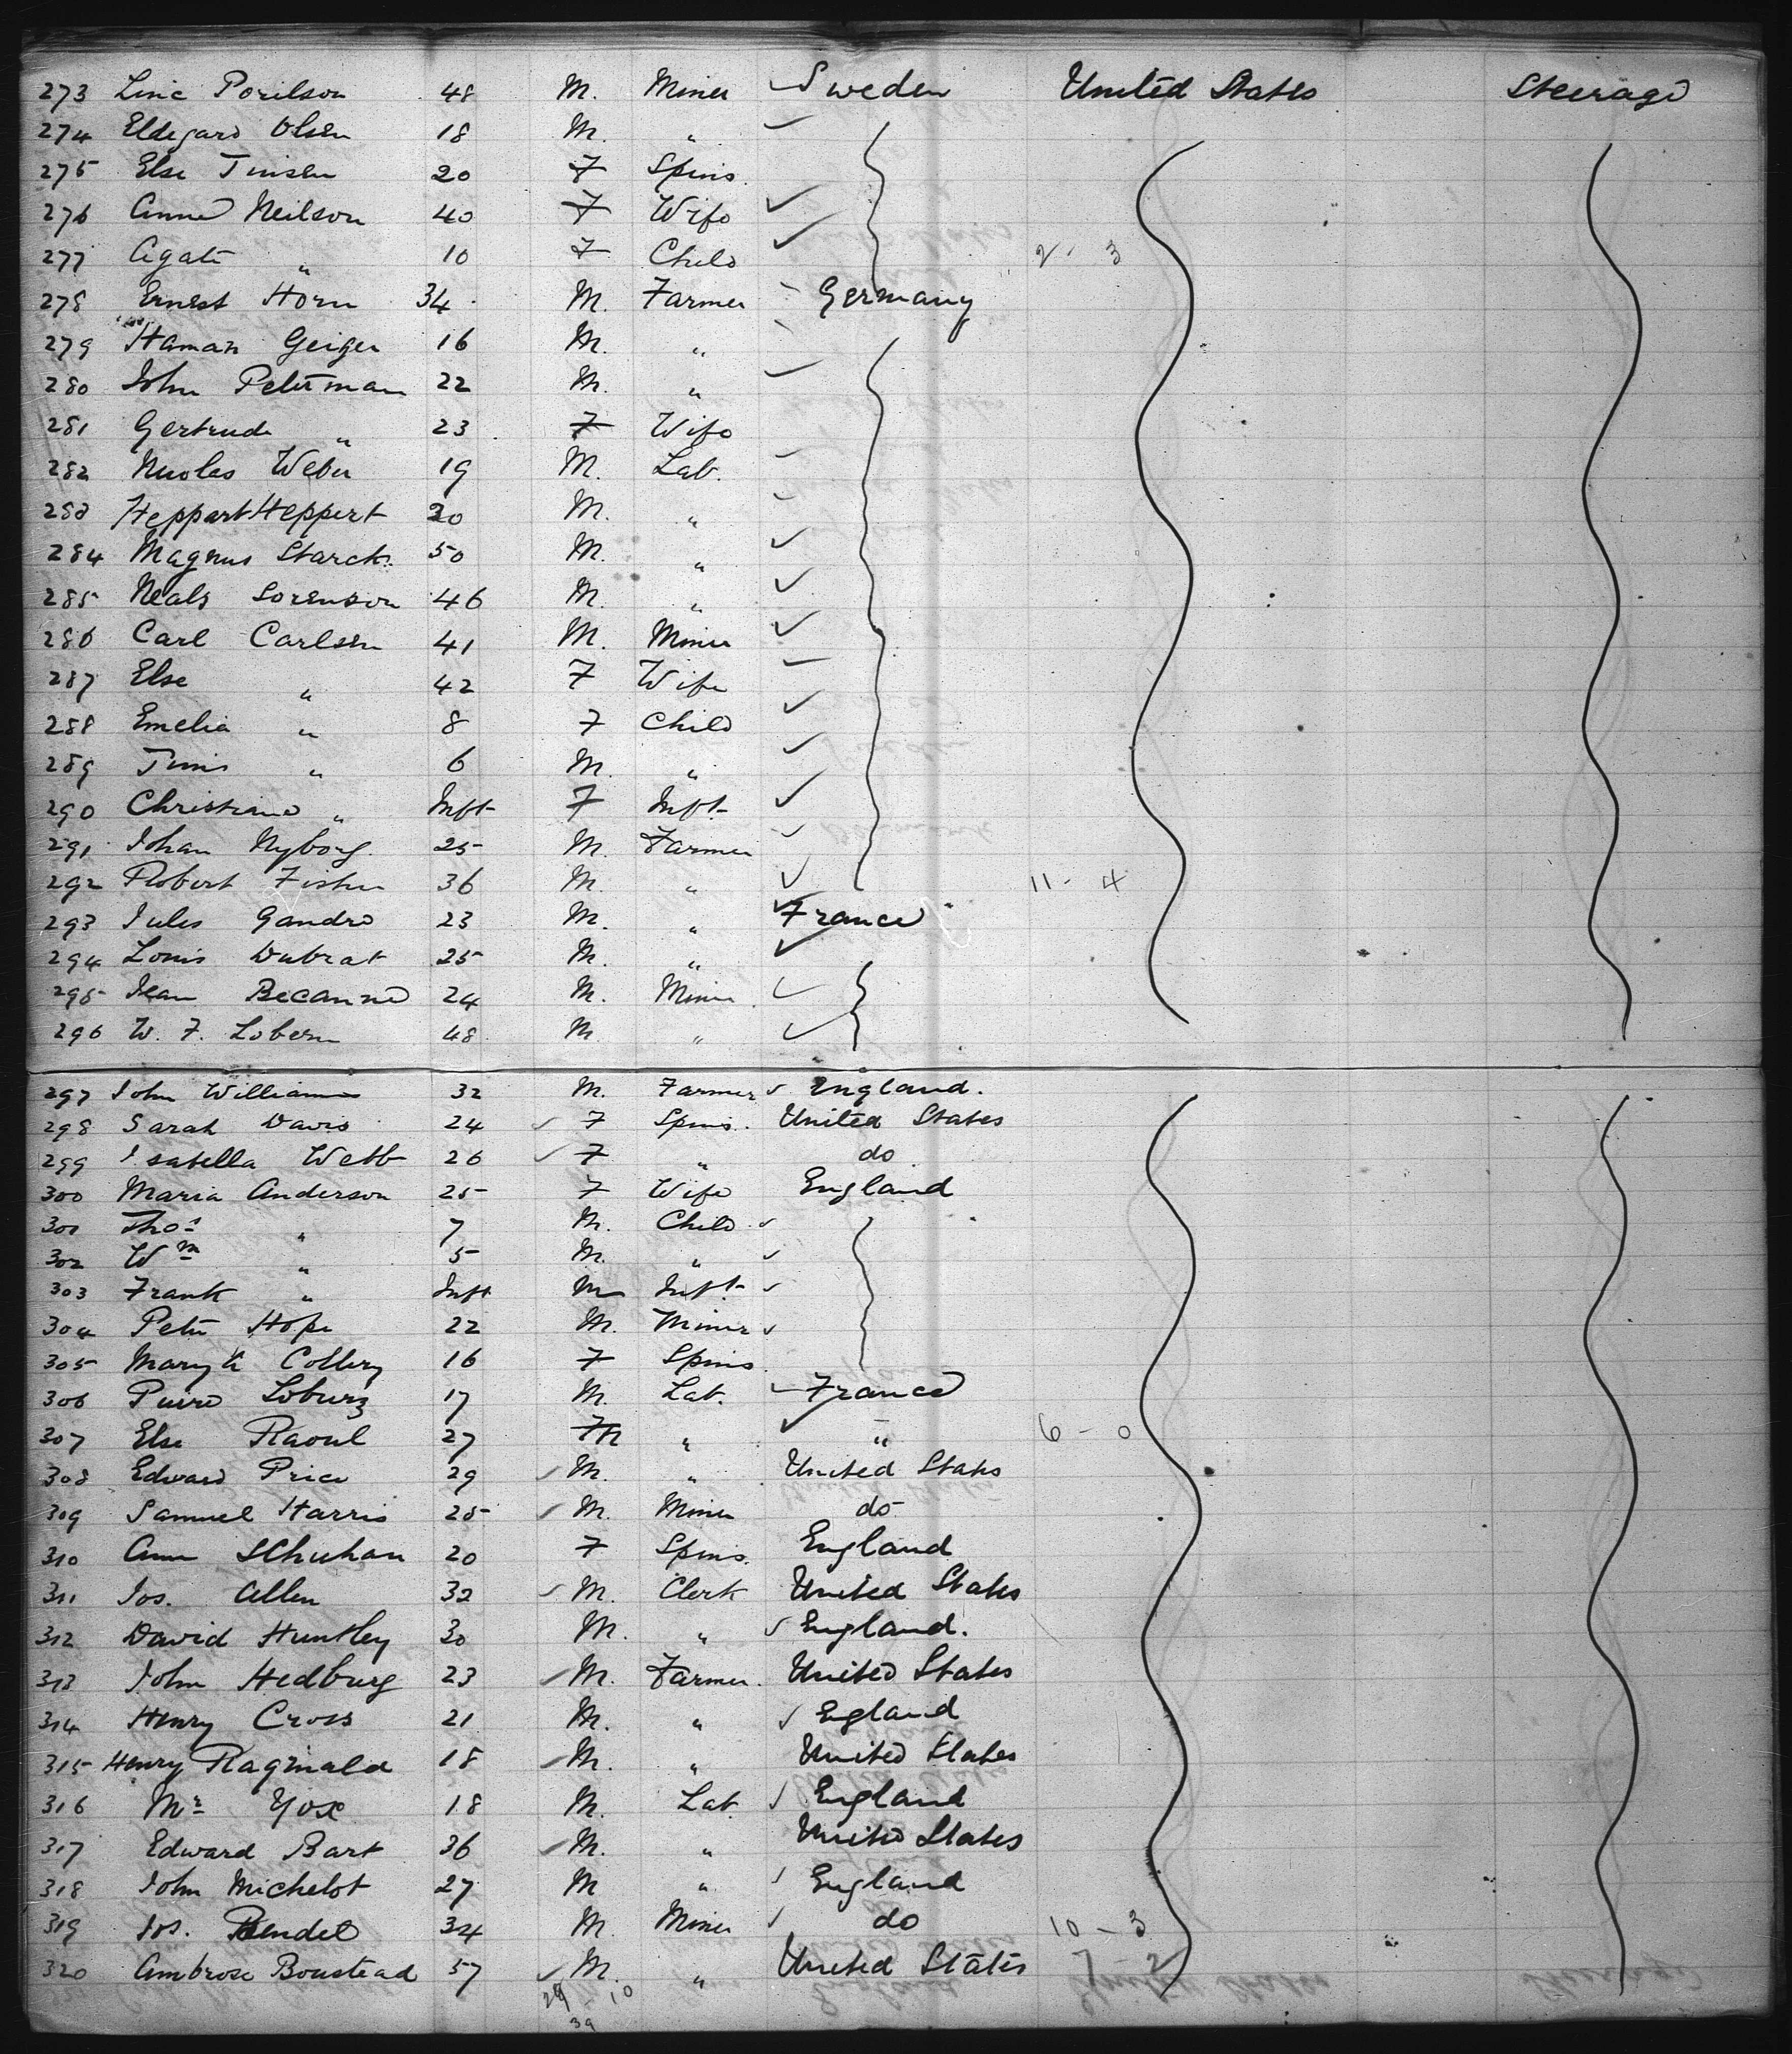 273 Linc Porilson 48 M. Miner Sweden United States Steerage
274 Eldegard Olsen 18 M. "
275 Else Tinsen 20 F Spins.
276 Anne Neilson 40 F Wife
277 Agate " 10 F Child 2 - 3
278 Ernest Horn 34 M. Farmer Germany
279 Haman Geiger 16 M. "
280 John Peterman 22 M. "
281 Gertrude " 23 F Wife
282 Nicolas Weber 19 M. Lab.
283 Heppart Heppert 20 M. "
284 Magnus Starck. 50 M. "
285 Neals Sorenson 46 M. "
286 Carl Carlsen 41 M. Miner
287 Else " 42 F Wife
288 Emelia " 8 F Child
289 Tinis " 6 M. "
290 Christiane " Inft F Inft
291 Johan Nyborg. 25 M. Farmer
292 Robert Fisher 36 M. " 11 - 4
293 Jules Gandre 23 M. " France
294 Louis Dubrat 25 M. "
295 Jean Becanne 24 M. Miner
296 W. F. Lobern 48 M "
297 John Williams 32 M. Farmer England.
298 Sarah Davis 24 F Spins. United States
299 Isabella Webb 26 F " do
300 Maria Anderson 25 F Wife England
301 Thos " 7 M. Child
302 Wm " 5 M. "
303 Frank " Inft M Inft
304 Peter Hope 22 M. Miner
305 Mary A Collery 16 F Spins
306 Pierre Loburg 17 M. Lab. France
307 Else Raoul 27 M " " 6 - 0
308 Edward Price 29 M. " United States
309 Samuel Harris 25 M. Miner do
310 Ann 20 F Spins. England
311 Jos. Allen 32 M. Clerk United States
312 David Huntley 30 M. " England.
313 John Hedburg 23 M. Farmer. United States
314 Henry Cross 21 M. " England
315 Henry Raginald 18 M. " United States
316 Mr Yox 18 M. Lab. England
317 Edward Bart 36 M. " United States
318 John Michelot 27 M " England
319 Jos. Rendel 34 M. Miner do 10 - 3
320 Ambrose Boustead 57 M. " United States 7 - 2
29 - 10
39